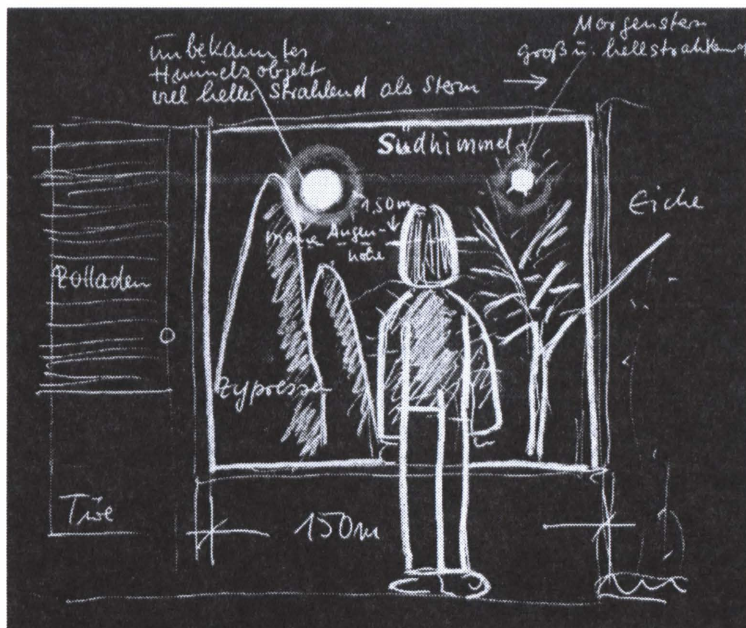 unbekanntes
Himmelsobjekt
viel heller strahlend als Stern
Morgenstern
groß u. hellstrahlend
Südhimmel
1,50m
meine Augen-
höhe
Eiche
Rolladen
Zypresse
Türe
150m